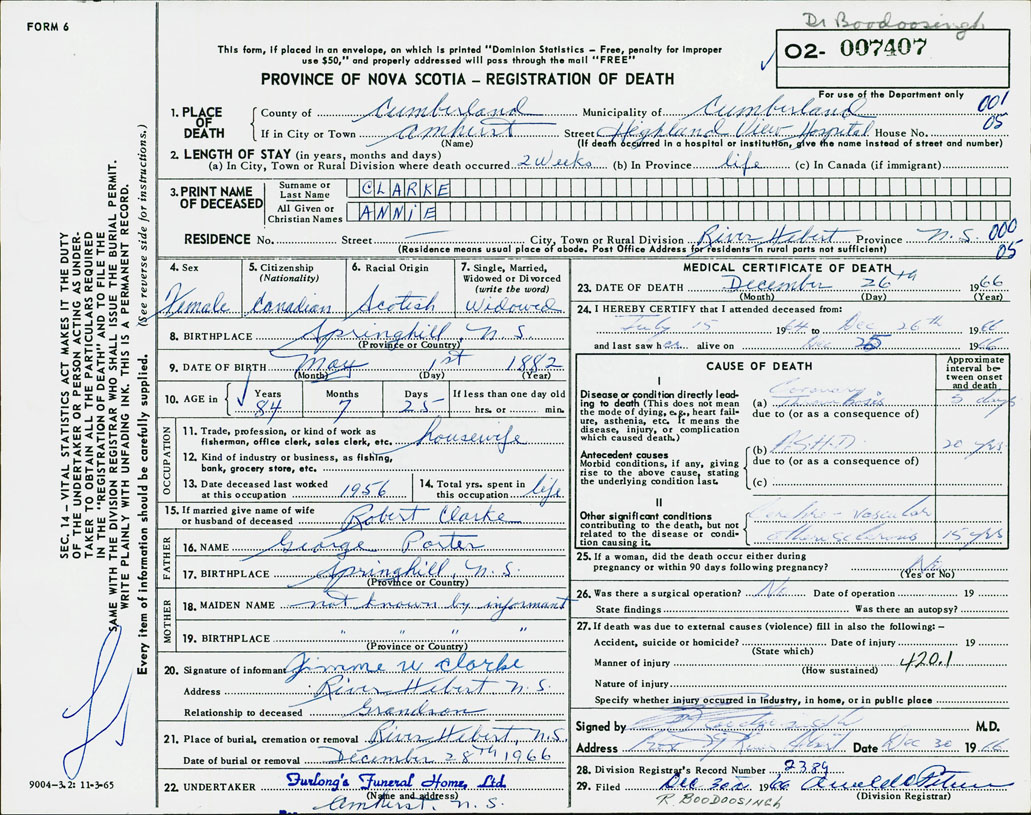 FORM 6
Dr Boodoosingh
This form, if placed in an envelope, on which is printed "Dominion Statistics – Free, penalty for improper
use $50," and properly addressed will pass through the mail "FREE"
PROVINCE OF NOVA SCOTIA – REGISTRATION OF DEATH
O2- 007407
For use of the Department only
001
05
1. PLACE OF DEATH
County of Cumberland Municipality of Cumberland
If in City or Town Amhurst Street Highland View Hospital House No.
(Name) (If death occurred in a hospital or institution, give the name instead of street and number)
2. LENGTH OF STAY (in years, months and days)
(a) In City, Town or Rural Division where death occurred 2 weeks (b) In Province life (c) In Canada (if immigrant)
3. PRINT NAME OF DECEASED
Surname or Last Name CLARKE
All Given or Christian Names ANNIE
RESIDENCE No. Street — City, Town or Rural Division River Hebert Province N.S. 000
(Residence means usual place of abode. Post Office Address for residents in rural parts not sufficient) 05
4. Sex
Female
5. Citizenship
(Nationality)
Canadian
6. Racial Origin
Scotish
7. Single, Married,
Widowed or Divorced
(write the word)
Widowed
8. BIRTHPLACE Springhill, N.S.
(Province or Country)
9. DATE OF BIRTH May 1st 1882
(Month) (Day) (Year)
10. AGE in Years Months Days If less than one day old
84 7 25 hrs. or min.
OCCUPATION
11. Trade, profession, or kind of work as
fisherman, office clerk, sales clerk, etc. housewife
12. Kind of industry or business, as fishing,
bank, grocery store, etc.
13. Date deceased last worked
at this occupation 1956
14. Total yrs. spent in
this occupation life
15. If married give name of wife
or husband of deceased Robert Clarke
FATHER
16. NAME George Porter
17. BIRTHPLACE Springhill, N.S.
(Province or Country)
MOTHER
18. MAIDEN NAME not known by informant
19. BIRTHPLACE " " " "
(Province or Country)
20. Signature of informant Jimme W Clarke
Address River Hebert N.S.
Relationship to deceased Grandson
21. Place of burial, cremation or removal River Hebert, N.S.
Date of burial or removal December 28th 1966
22. UNDERTAKER Furlong's Funeral Home, Ltd.
(Name and address)
Amherst, N.S.
MEDICAL CERTIFICATE OF DEATH
23. DATE OF DEATH December 26th 1966
(Month) (Day) (Year)
24. I HEREBY CERTIFY that I attended deceased from:
July 15 1964 to Dec 26th 1966
and last saw her alive on Dec 25 1966
CAUSE OF DEATH
Approximate
interval be-
tween onset
and death
I
Disease or condition directly lead-
ing to death (This does not mean
the mode of dying, e.g., heart fail-
ure, asthenia, etc. It means the
disease, injury, or complication
which caused death.)
Coronary
(a) Thrombosis 5 days
due to (or as a consequence of)
Antecedent causes
Morbid conditions, if any, giving
rise to the above cause, stating
the underlying condition last.
(b) A.S.H.D. 20 yrs
due to (or as a consequence of)
(c)
II
Other significant conditions
contributing to the death, but not
related to the disease or condi-
tion causing it.
vascular
15 yrs
25. If a woman, did the death occur either during
pregnancy or within 90 days following pregnancy? No
(Yes or No)
26. Was there a surgical operation? No Date of operation 19
State findings Was there an autopsy?
27. If death was due to external causes (violence) fill in also the following: –
Accident, suicide or homicide? Date of injury 19
(State which)
Manner of injury 420.1
(How sustained)
Nature of injury
Specify whether injury occurred in industry, in home, or in public place
Signed by M.D.
Address River Hebert Date Dec 30 1966
28. Division Registrar's Record Number 2389
29. Filed Dec 30 1966
(Division Registrar)
R BOODOOSINGH
SEC. 14 – VITAL STATISTICS ACT MAKES IT THE DUTY
OF THE UNDERTAKER OR PERSON ACTING AS UNDER-
TAKER TO OBTAIN ALL THE PARTICULARS REQUIRED
IN THE "REGISTRATION OF DEATH" AND TO FILE THE
SAME WITH THE DIVISION REGISTRAR WHO SHALL ISSUE THE BURIAL PERMIT.
WRITE PLAINLY WITH UNFADING INK. THIS IS A PERMANENT RECORD.
Every item of information should be carefully supplied. (See reverse side for instructions.)
9004–3.2: 11-3-65